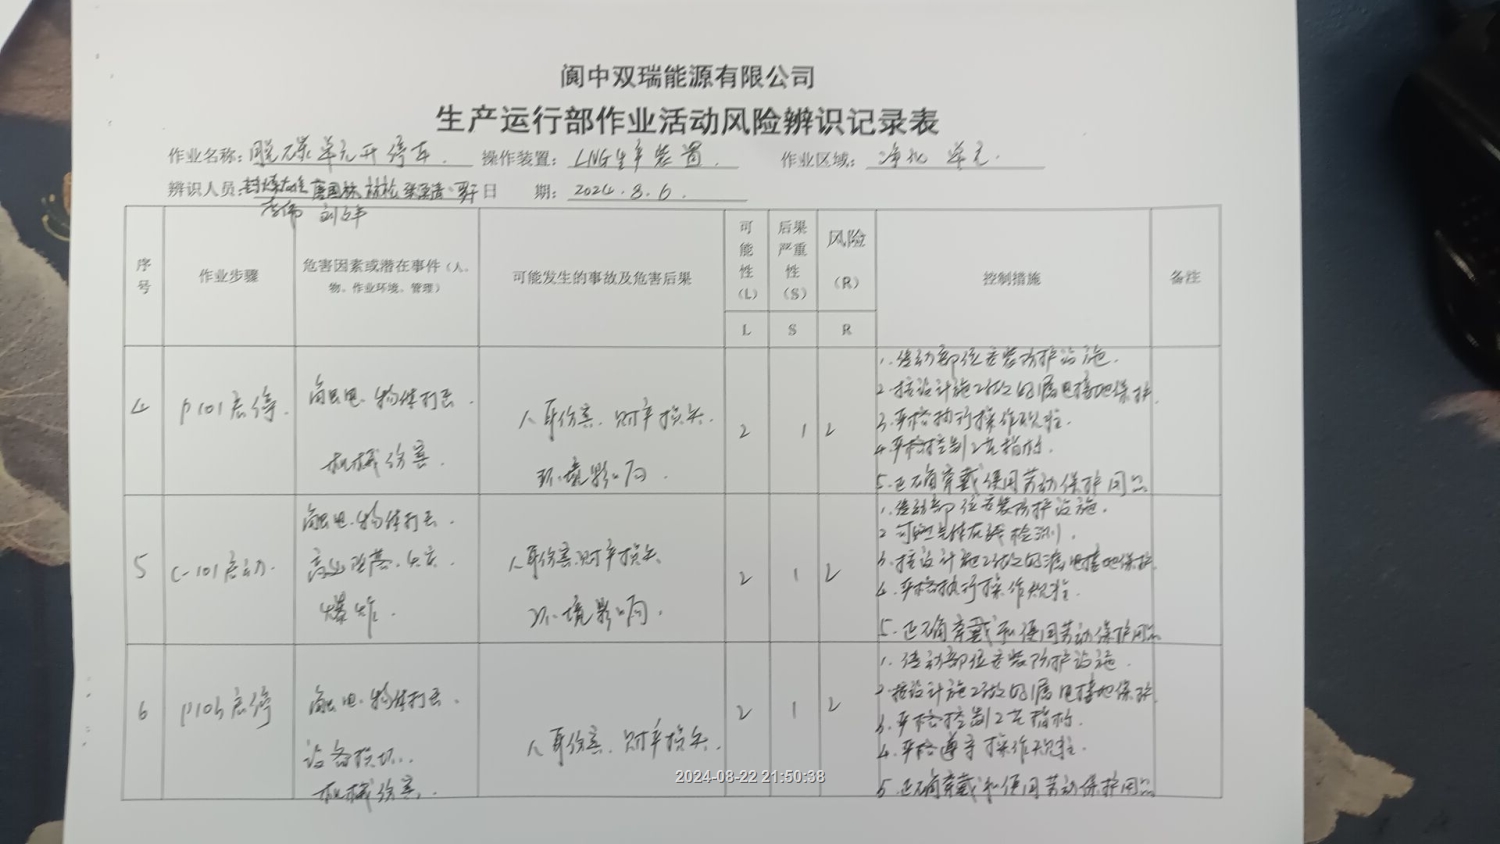 阆中双瑞能源有限公司
生产运行部作业活动风险辨识记录表
作业名称：脱碳单元开停车. 操作装置：LNG生产装置 作业区域：净化单元.
辨识人员： 日 期：2024.8.6.
序号 作业步骤 危害因素或潜在事件（人、物、作业环境、管理） 可能发生的事故及危害后果 可能性（L） 后果严重性（S） 风险（R） 控制措施 备注
L S R
4 P101启停. 触电、物体打击.
机械伤害.
人身伤害、财产损失.
环境影响.
2 1 2
1.传动部位安装防护设施.
2.按设计施工接地保护.
3.严格执行操作规程.
4.严格控制工艺指标.
5.正确穿戴使用劳动保护用品
5 C-101启动. 触电、物体打击.
高处坠落、火灾.
爆炸.
人身伤害、财产损失
环境影响.
2 1 2
1.传动部位安装防护设施.
2 可燃气体在线检测.
3.按设计施工接地保护.
4.严格执行操作规程.
5.正确穿戴和使用劳动保护用品
6 P106启停 触电、物体打击.
设备损坏.
机械伤害.
人身伤害、财产损失.
2 1 2
1.传动部位安装防护设施.
2.按设计施工接地保护.
3.严格控制工艺指标.
4.严格遵守操作规程.
5.正确穿戴和使用劳动保护用品
2024-08-22 21:50:38